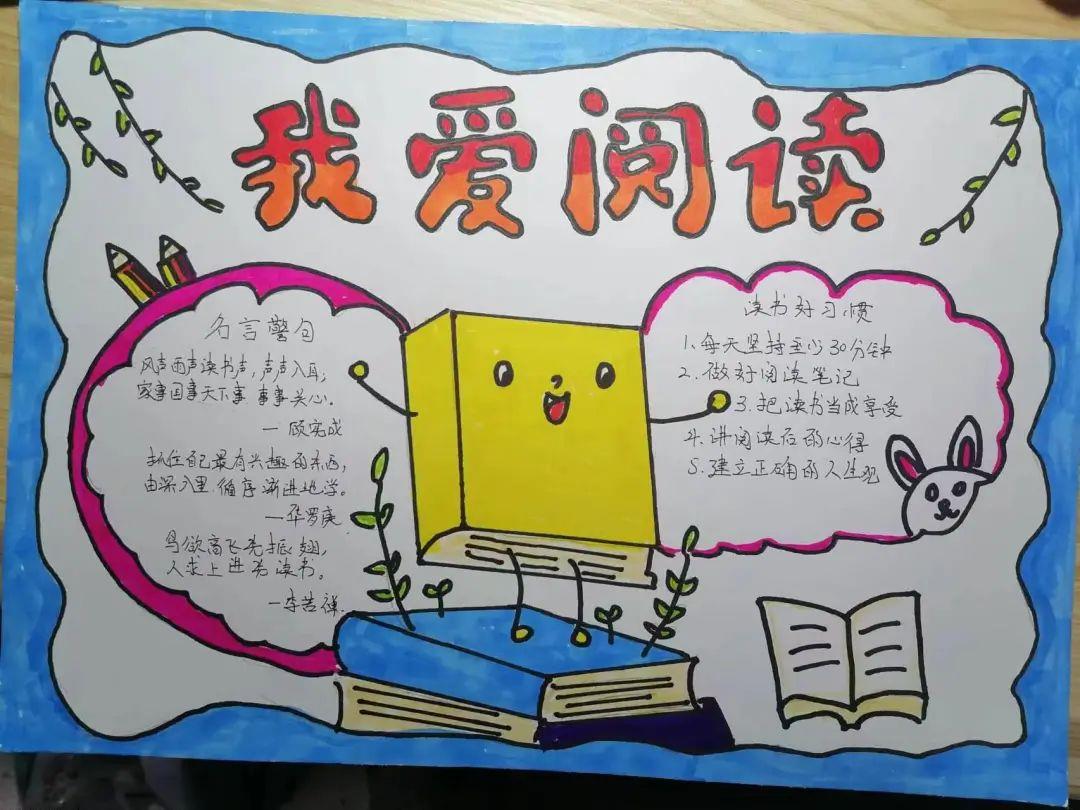 我爱阅读
名言警句
风声雨声读书声，声声入耳；
家事国事天下事 事事关心。
一 顾宪成
抓住自己最有兴趣的东西，
由深入里 循序渐进地学。
一华罗庚
鸟欲高飞先振翅，
人求上进先读书。
一李苦禅
读书好习惯
1.每天坚持至少30分钟
2.做好阅读笔记
3.把读书当成享受
4.讲阅读后的心得
5.建立正确的人生观